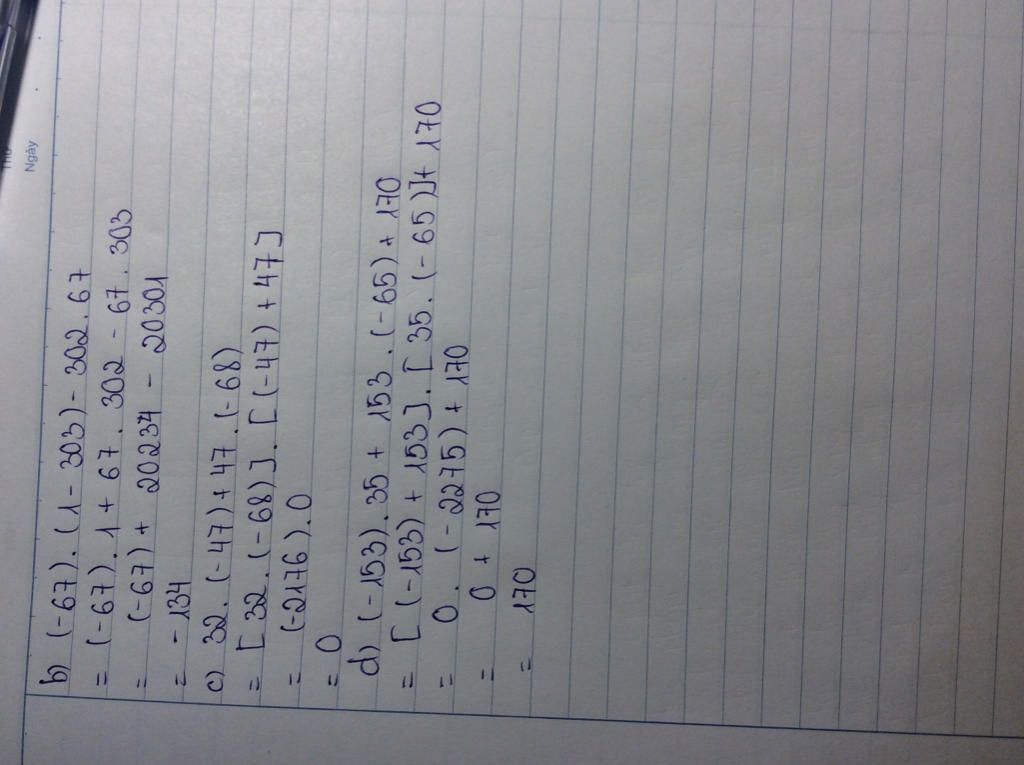 Thứ
Ngày
b) (-67) . (1 - 303) - 302 . 67
= (-67) . 1 + 67 . 302 - 67 . 303
= (-67) + 20234 - 20301
= - 134
c) 32 . (-47) + 47 . (-68)
= [ 32 . (-68) ] . [ (-47) + 47 ]
= (-2176) . 0
= 0
d) (-153) . 35 + 153 . (-65) + 170
= [ (-153) + 153 ] . [ 35 . (-65) ] + 170
= 0 . (-2275) + 170
= 0 + 170
= 170